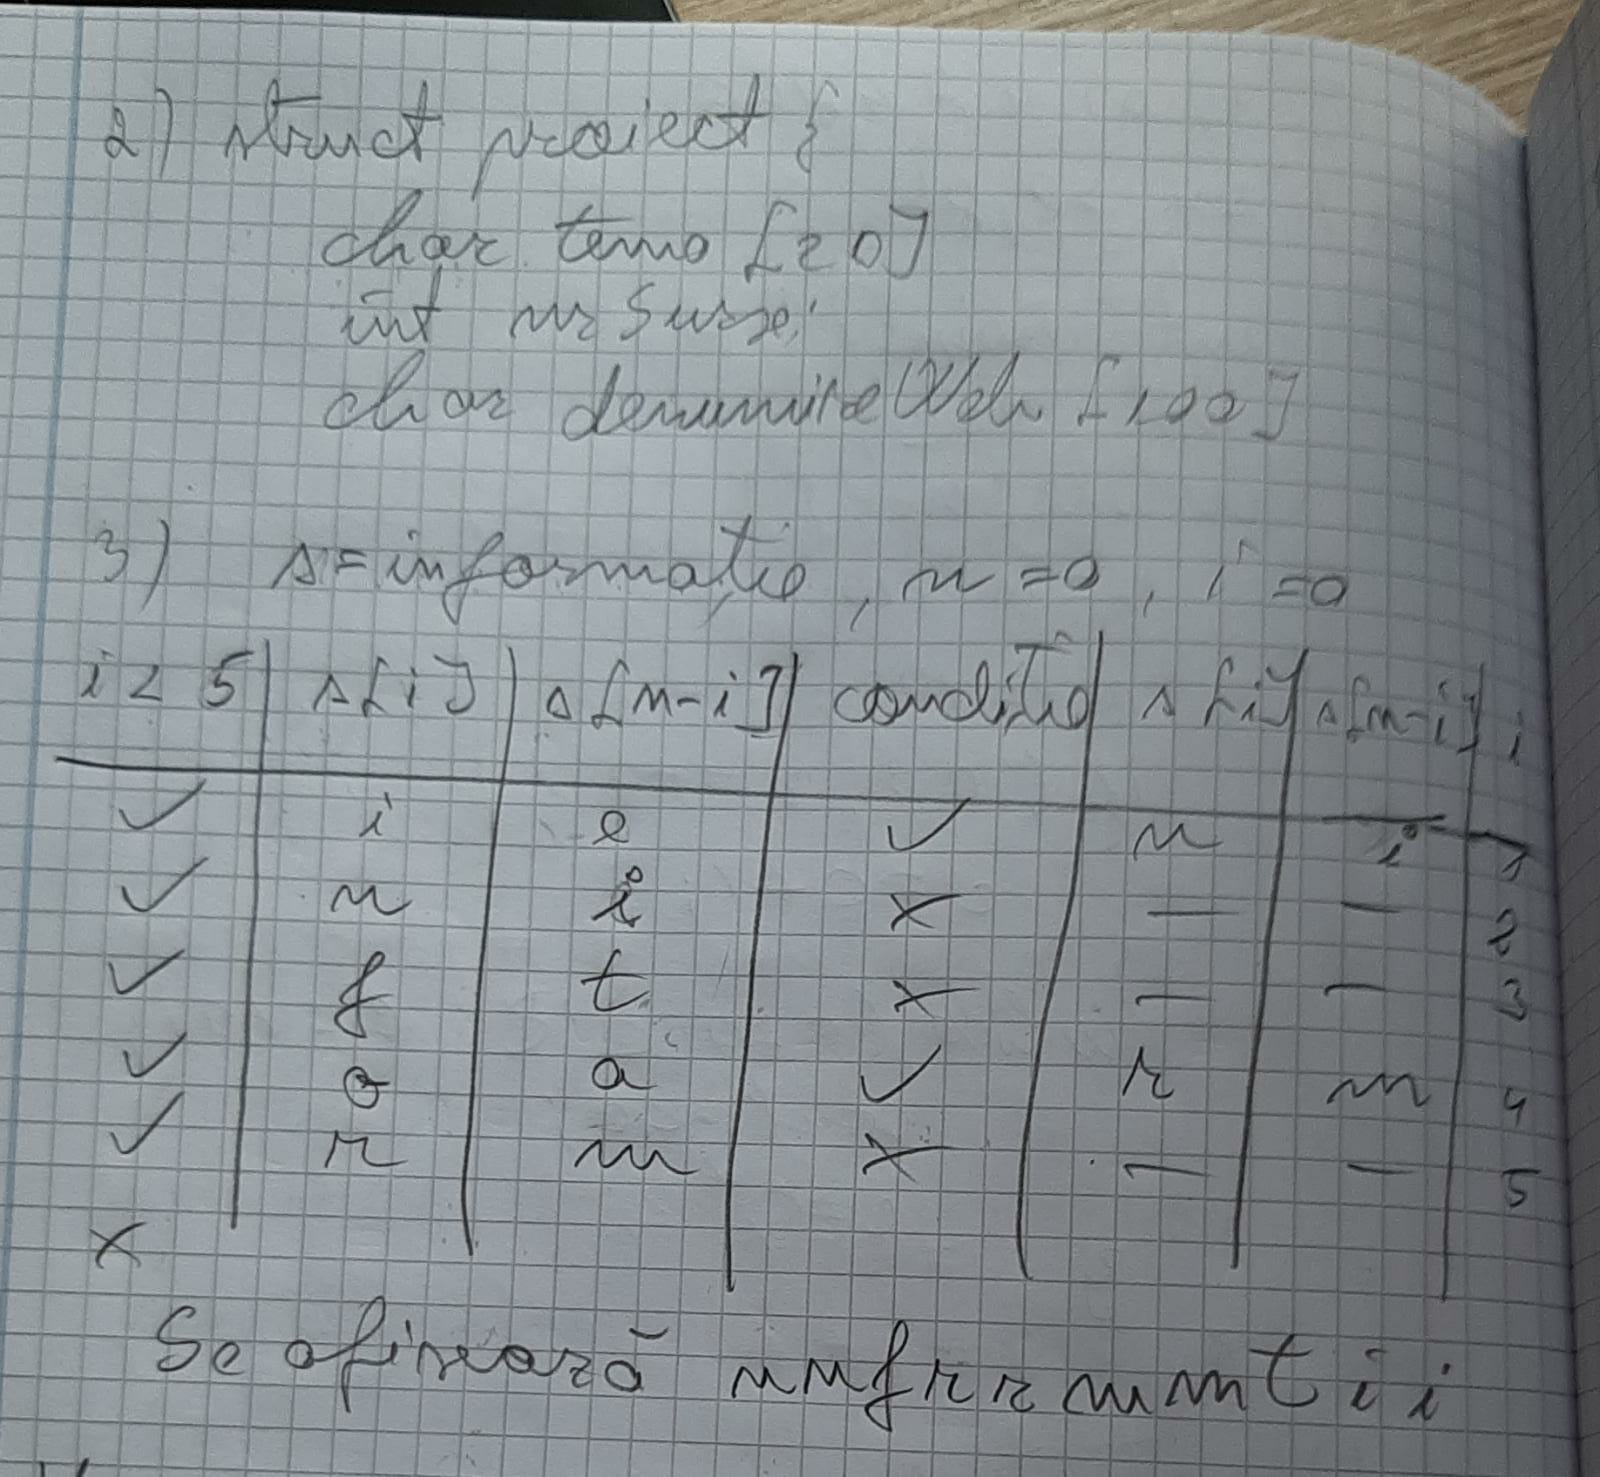 2) struct proiect {
char tema [20]
int nrSurse;
char denumireWeb [100]
3) s=informatie, n=0, i=0
i < 5 | s[i] | s[n-i] | condiție | s[i] | s[n-i] | i
✓ i e ✓ n i 1
✓ n i × — — 2
✓ f t × — — 3
✓ o a ✓ r m 4
✓ r m × — — 5
×
Se afișează nnfrrmmtii